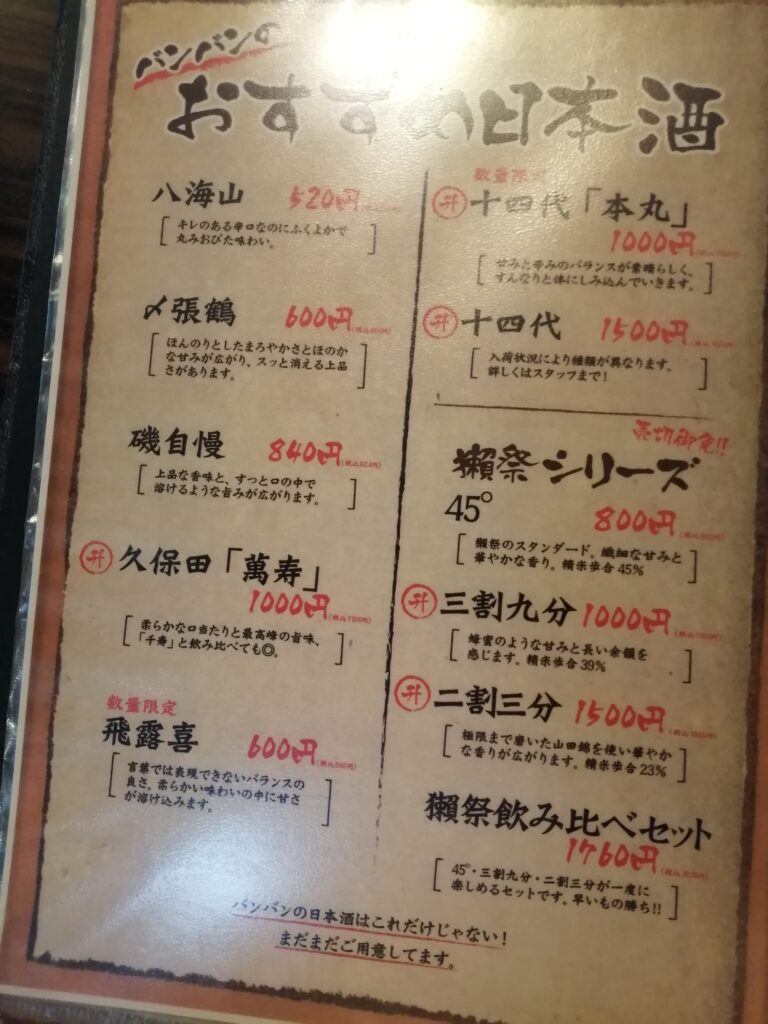 バンバンの
おすすめ日本酒
八海山 520円
キレのある辛口なのにふくよかで
丸みおびた味わい。
〆張鶴 600円
ほんのりとしたまろやかさとほのか
な甘みが広がり、スッと消える上品
さがあります。
磯自慢 840円(税込924円)
上品な香味と、すっと口の中で
溶けるような旨みが広がります。
升 久保田「萬寿」
1000円(税込1100円)
柔らかな口当たりと最高峰の旨味、
「千寿」と飲み比べても◎。
数量限定
飛露喜 600円(税込660円)
言葉では表現できないバランスの
良さ。柔らかい味わいの中に甘さ
が溶け込みます。
数量限定
升 十四代「本丸」
1000円
甘みと辛みのバランスが素晴らしく、
すんなりと体にしみ込んでいきます。
升 十四代 1500円
入荷状況により種類が異なります。
詳しくはスタッフまで!
売切御免!!
獺祭シリーズ
45° 800円
獺祭のスタンダード。繊細な甘みと
華やかな香り。精米歩合45%
升 三割九分 1000円
蜂蜜のような甘みと長い余韻を
感じます。精米歩合39%
升 二割三分 1500円
極限まで磨いた山田錦を使い華やか
な香りが広がります。精米歩合23%
獺祭飲み比べセット
1760円
45°・三割九分・二割三分が一度に
楽しめるセットです。早いもの勝ち!!
バンバンの日本酒はこれだけじゃない!
まだまだご用意してます。